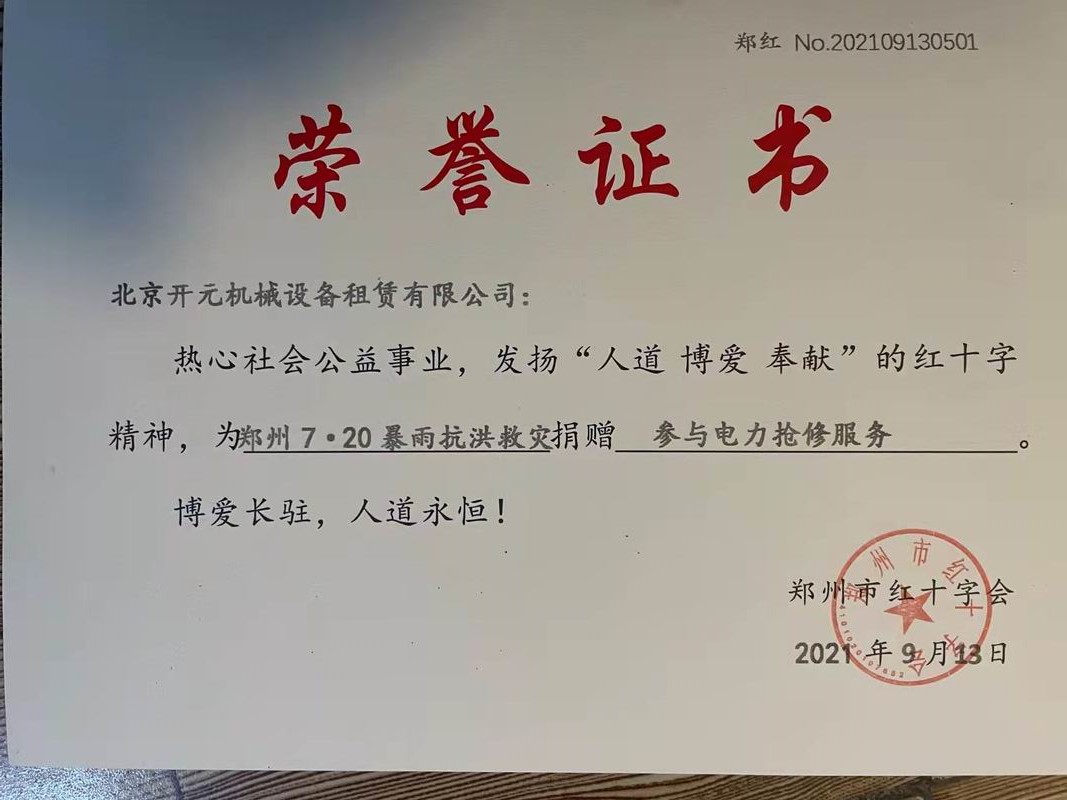 郑红 No.202109130501
荣誉证书
北京开元机械设备租赁有限公司：
热心社会公益事业，发扬“人道 博爱 奉献”的红十字
精神，为郑州 7·20 暴雨抗洪救灾捐赠 参与电力抢修服务。
博爱长驻，人道永恒！
郑州市红十字会
2021 年 9 月 13 日
郑州市红十字会